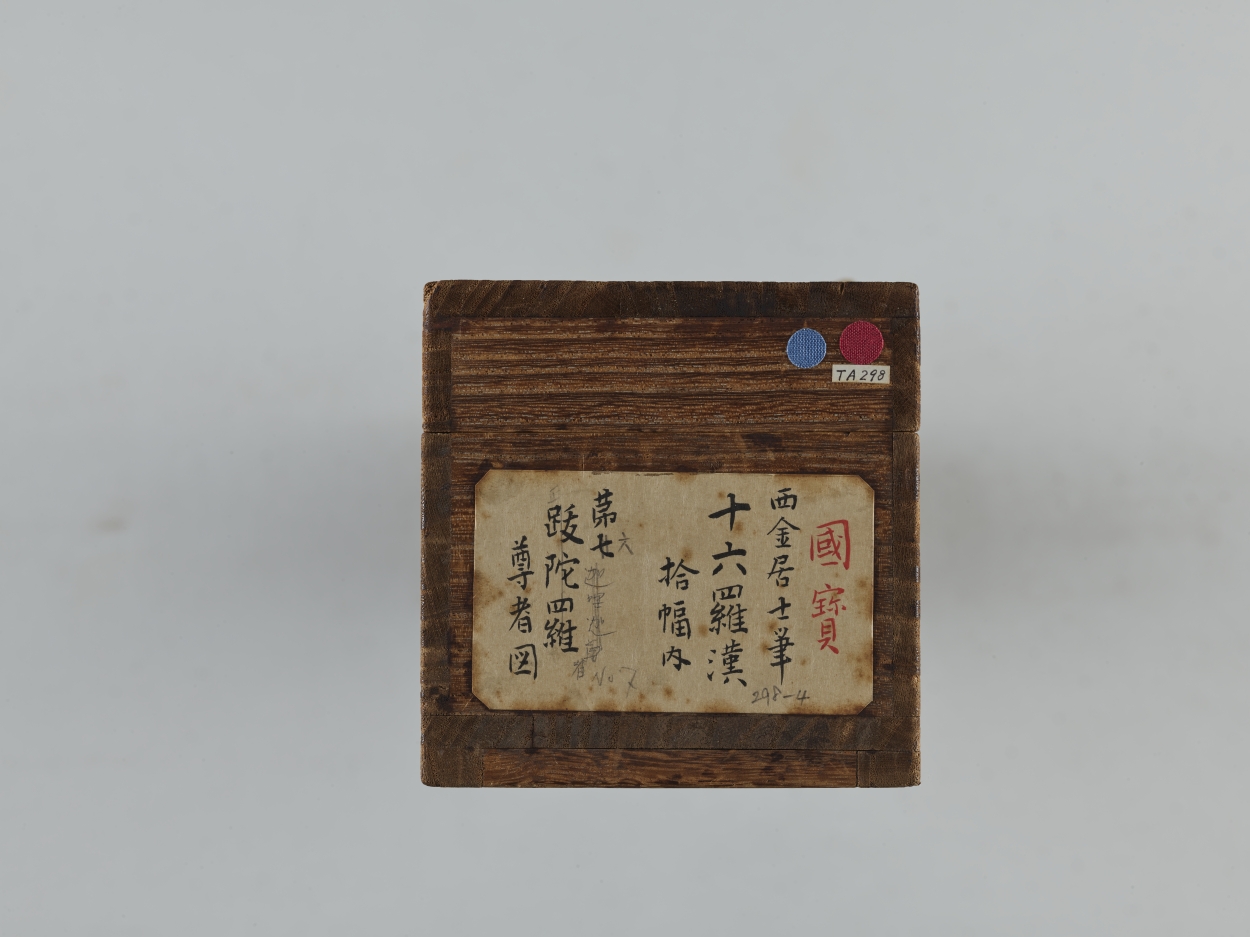 TA298
國寳
西金居士筆
十六羅漢
拾幅内
第七
六
No 7
跋陀羅
尊者図
298-4